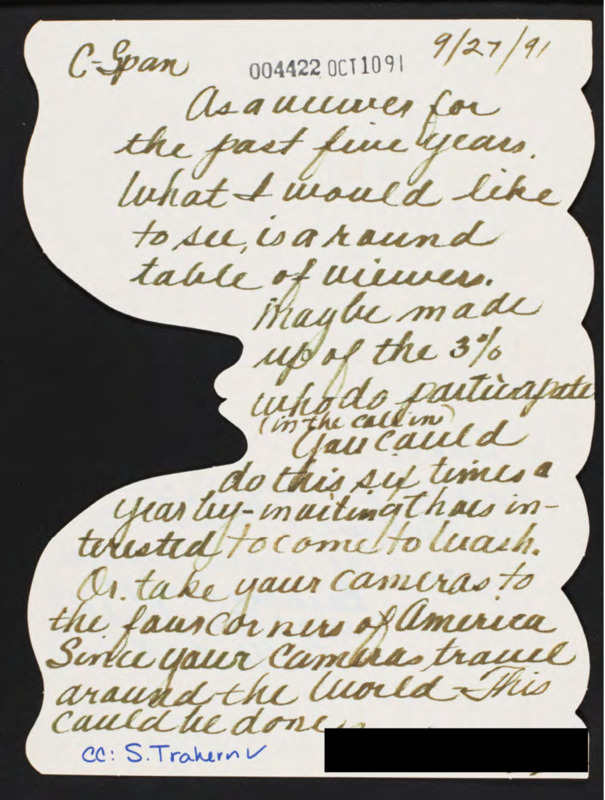 C-Span
004422 OCT10 91
9/27/91
As a viewer for
the past five years.
What I would like
to see, is a round
table of viewers.
Maybe made
up of the 3%
who do participate
(in the call in)
You could
do this six times a
year by-inviting thoes in-
terested to come to Wash.
Or. take your cameras to
the four corners of America
Since your cameras travel
around the World - This
could be done
cc: S. Trahern ✓